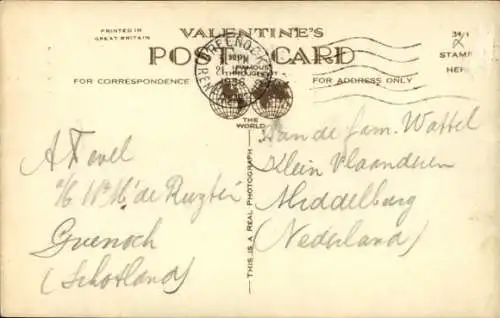 PRINTED IN
GREAT BRITAIN
VALENTINE'S
POST CARD
STAMP
HERE
FOR CORRESPONDENCE
FAMOUS
THROUGHOUT
FOR ADDRESS ONLY
GREENOCK
RENFREW
THE
WORLD
THIS IS A REAL PHOTOGRAPH
A Tevel
a/b Hr Ms "de Ruyter"
Greenoch
(Schotland)
Aan de fam. Wattel
Klein Vlaanderen
Middelburg
(Nederland)